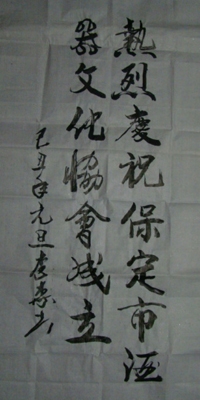 熱烈慶祝保定市酒
器文化協會成立
己丑年元旦李宗六